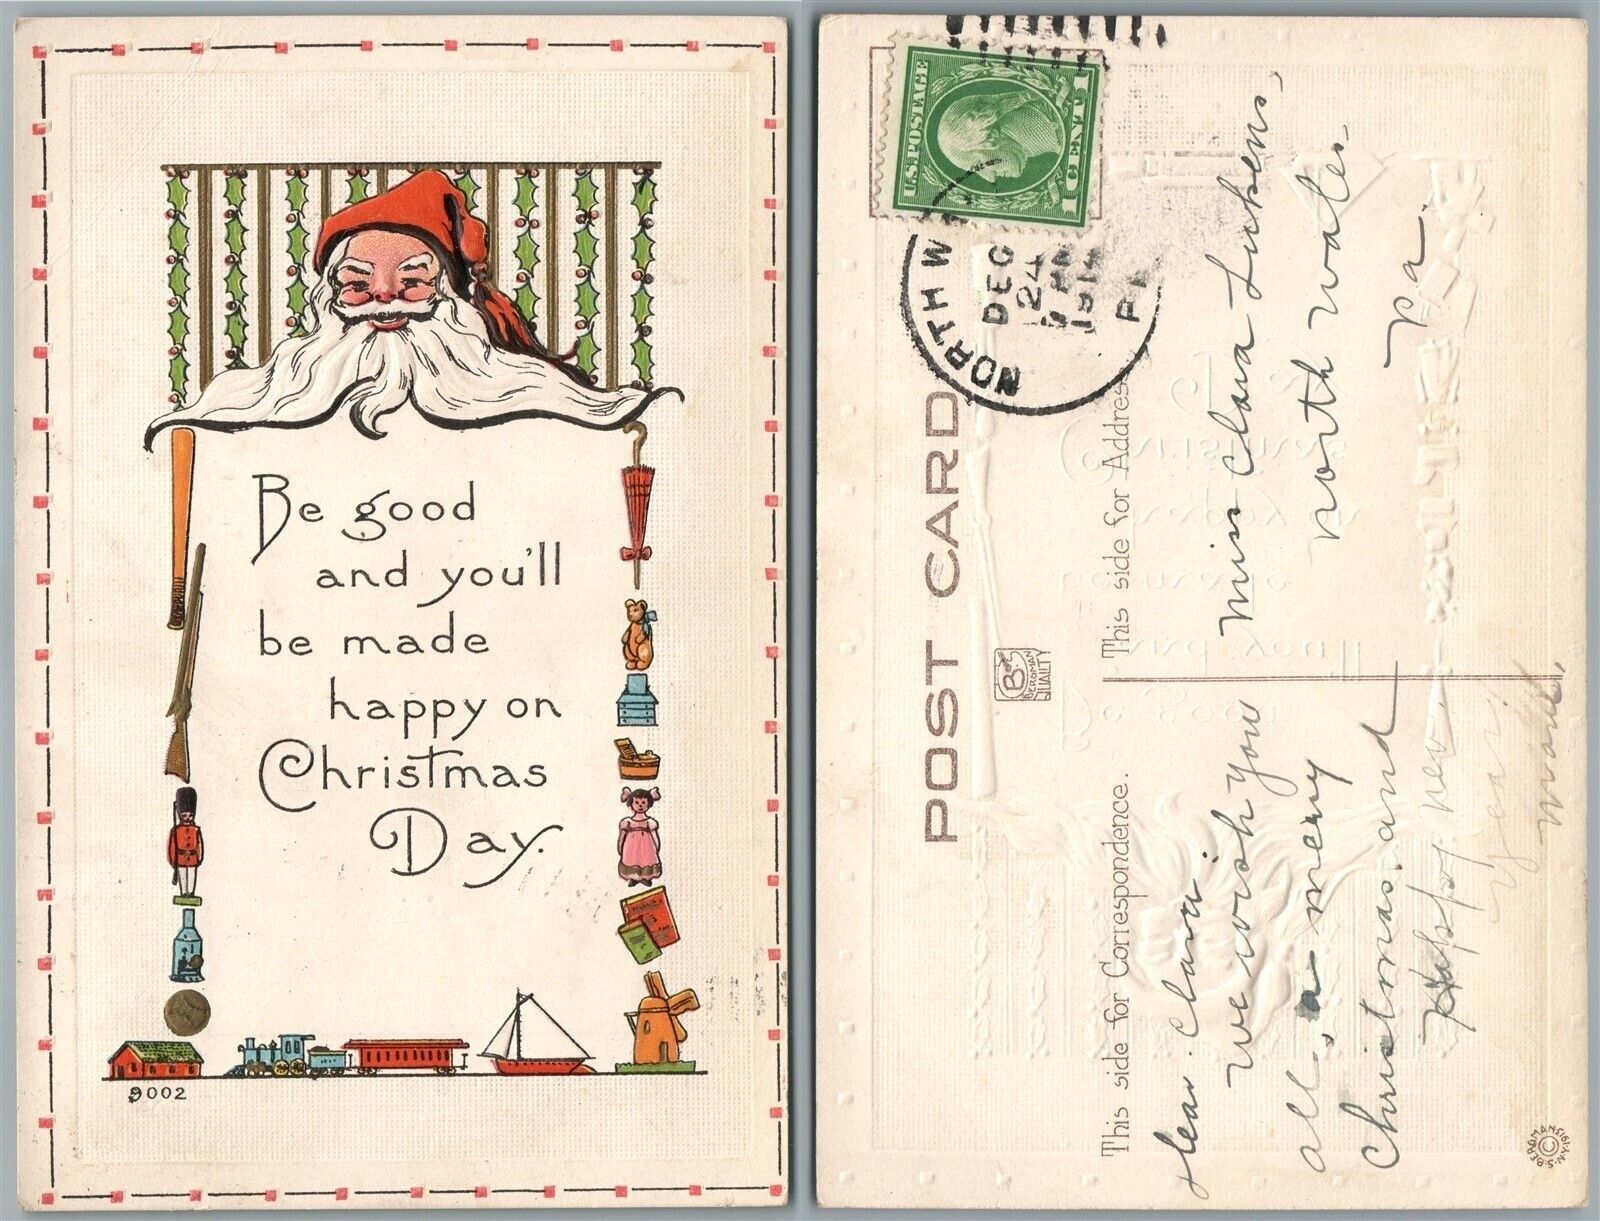 Be good
and you'll
be made
happy on
Christmas
Day.
9002
POST CARD
This side for Correspondence.
This side for Address
BERGMAN
QUALITY
U.S. POSTAGE
1 CENT 1
NORTH W
DEC
24
1914
PA
Dear Clara
We wish you
all, a merry
Christmas, and
Happy new
year,
Miss Clara Lukens,
North Wales
Pa.
S. BERGMAN N.Y. 1913
©